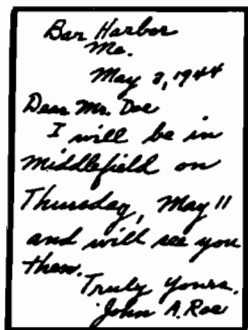 Bar Harbor
Me.
May 8, 1944
Dear Mr. Doe
I will be in
Middlefield on
Thursday, May 11
and will see you
then.
Truly yours,
John A. Roe